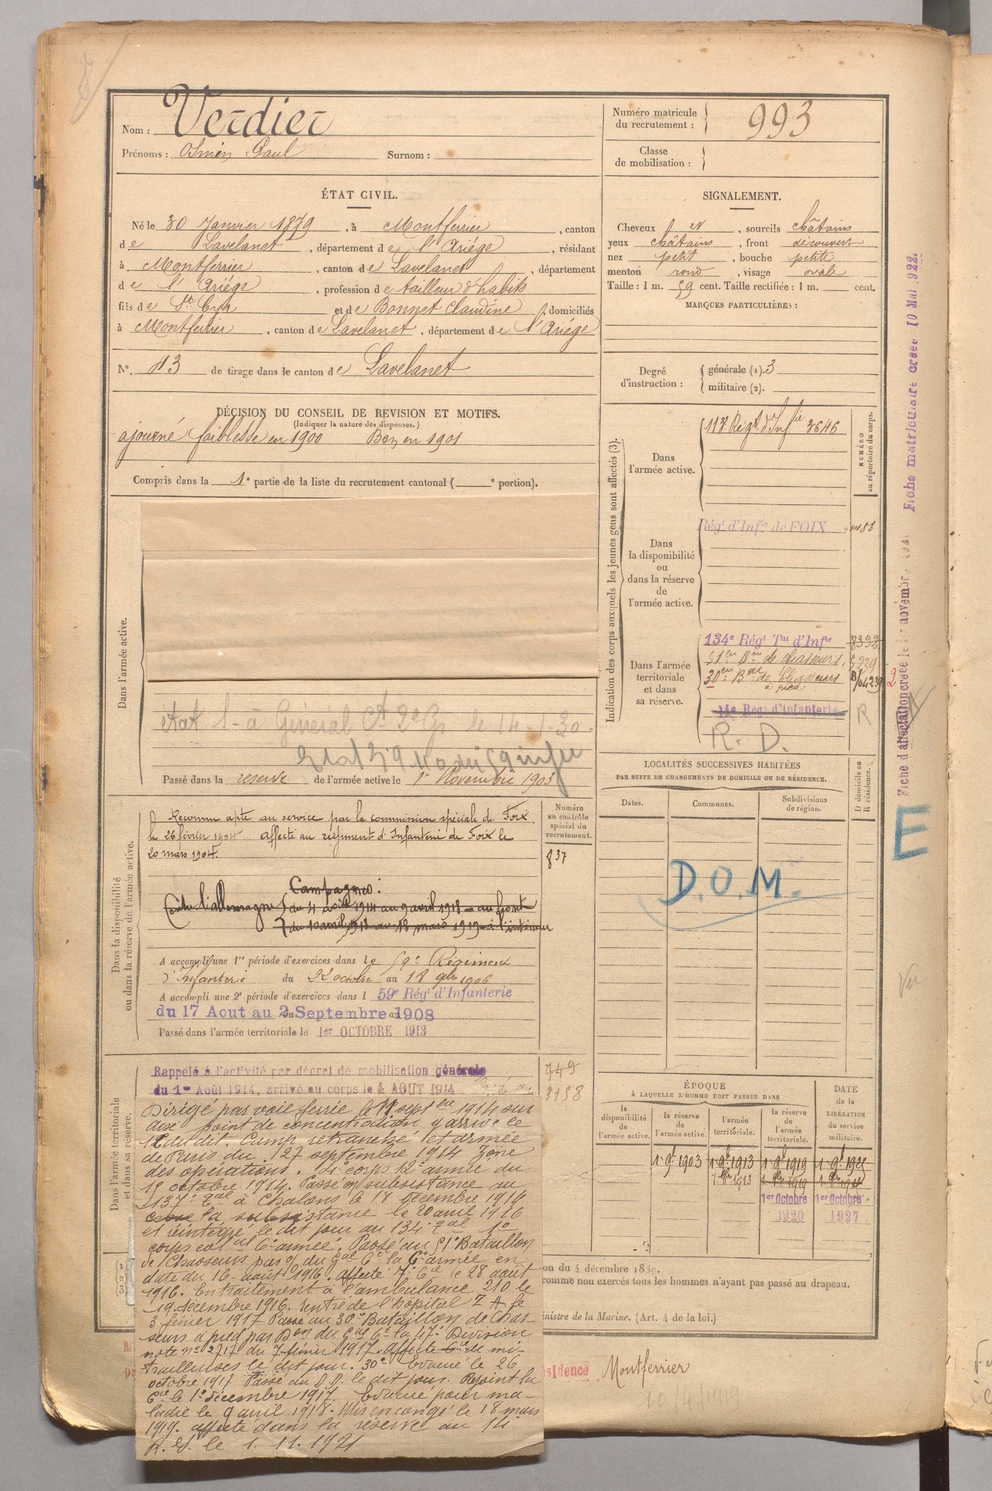 Nom : Verdier
Prénoms : Osmin Paul Surnom :
Numéro matricule du recrutement : 993
Classe de mobilisation :
ÉTAT CIVIL.
Né le 30 Janvier 1879, à Montferrier, canton
de Lavelanet, département de l'Ariége, résidant
à Montferrier, canton de Lavelanet, département
de l'Ariége, profession de tailleur d'habits
fils de St Cyr et de Bonnet Claudine, domiciliés
à Montferrier, canton de Lavelanet, département de l'Ariége
N°. 43 de tirage dans le canton de Lavelanet
SIGNALEMENT.
Cheveux, sourcils châtains
yeux châtains, front découvert
nez petit, bouche petite
menton rond, visage ovale
Taille : 1 m. 59 cent. Taille rectifiée : 1 m. cent.
MARQUES PARTICULIÈRES :
Degré d'instruction :
générale (1). 3
militaire (2).
DÉCISION DU CONSEIL DE REVISION ET MOTIFS.
(Indiquer la nature des dispenses.)
ajourné faiblesse en 1900 Bon en 1901
Compris dans la 1e partie de la liste du recrutement cantonal ( e portion).
Indication des corps auxquels les jeunes gens sont affectés (3).
NUMÉRO au répertoire du corps.
Dans l'armée active.
Régt d'Infie 3646
Dans la disponibilité ou dans la réserve de l'armée active.
Régt d'Infie de FOIX
Dans l'armée territoriale et dans sa réserve.
134e Régt Tal d'Infie
51e Bon de chasseurs
30e Bon de chasseurs à pied
14e Régt d'Infanterie
R. D.
R
Dans l'armée active.
Passé dans la réserve de l'armée active le 1er Novembre 1903
Dans la disponibilité ou dans la réserve de l'armée active.
Numéro au contrôle spécial du recrutement.
837
Reconnu apte au service par la commission spéciale de Foix
le 26 février 1904 affecté au régiment d'Infanterie de Foix le
20 mars 1904.
Campagnes :
Contre l'allemagne du 4 août 1914 au 9 avril 1918 au front
du 10 avril 1918 au 18 mars 1919 à l'intérieur
A accompli une 1re période d'exercices dans le 59e Régiment
d'Infanterie du 22 octobre au 18 9bre 1906
A accompli une 2e période d'exercices dans l 59e Régt d'Infanterie
du 17 Aout au 2 Septembre 1908
Passé dans l'armée territoriale le 1er OCTOBRE 1913
LOCALITÉS SUCCESSIVES HABITÉES
PAR SUITE DE CHANGEMENTS DE DOMICILE OU DE RÉSIDENCE.
D domicile ou R résidence.
Dates. Communes. Subdivisions de région.
D.O.M.
E
Dans l'armée territoriale et dans sa réserve.
Rappelé à l'activité par décret de mobilisation générale
du 1er Août 1914, arrivé au corps le 4 AOUT 1914
749
3158
Dirigé par voie ferrée le 11 septbre 1914 sur
un point de concentration, y arrive le
12 du dit. Camp retranché et armée
de Paris du 12 7 septembre 1914. Zone
des opérations. 2e corps 12e armée du
octobre 1914. Passé en subsistance au
137e à Chalons le 18 décembre 1916
cesse la subsistance le 20 avril 1916
et réintègre le dit jour au 134e
corps 6e armée. Passé au 51e Bataillon
de Chasseurs par la 6e armée en
date du 16 août 1916. affecté 7e Cie le 28 août
1916. En traitement à l'ambulance 210 le
19 décembre 1916. rentré de l'hôpital le
3 février 1917 Passé au 30e Bataillon de Chas-
seurs à pied par Don du Gal Ct la 47e Division
note no 2717 du 7 février 1917. affecté Cie de mi-
trailleuses le dit jour. 30e évacué le 26
octobre 1917. Passé au D.D. le dit jour. Rejoint la
Cie le 1er décembre 1917. Evacué pour ma-
ladie le 9 avril 1918. Mis en congé le 18 mars
1919. affecté dans la réserve au 14e
R.I. le 1. 11. 1921
ÉPOQUE
À LAQUELLE L'HOMME DOIT PASSER DANS
la disponibilité de l'armée active. la réserve de l'armée active. l'armée territoriale. la réserve de l'armée territoriale.
DATE de la LIBÉRATION du service militaire.
1 9bre 1903 1 9bre 1913 1 9bre 1919
1er Octobre 1920 1er Octobre 1927
comme non exercés tous les hommes n'ayant pas passé au drapeau.
ministre de la Marine. (Art. 4 de la loi.)
Montferrier
Fiche matriculaire créée 10 Mai 1922.